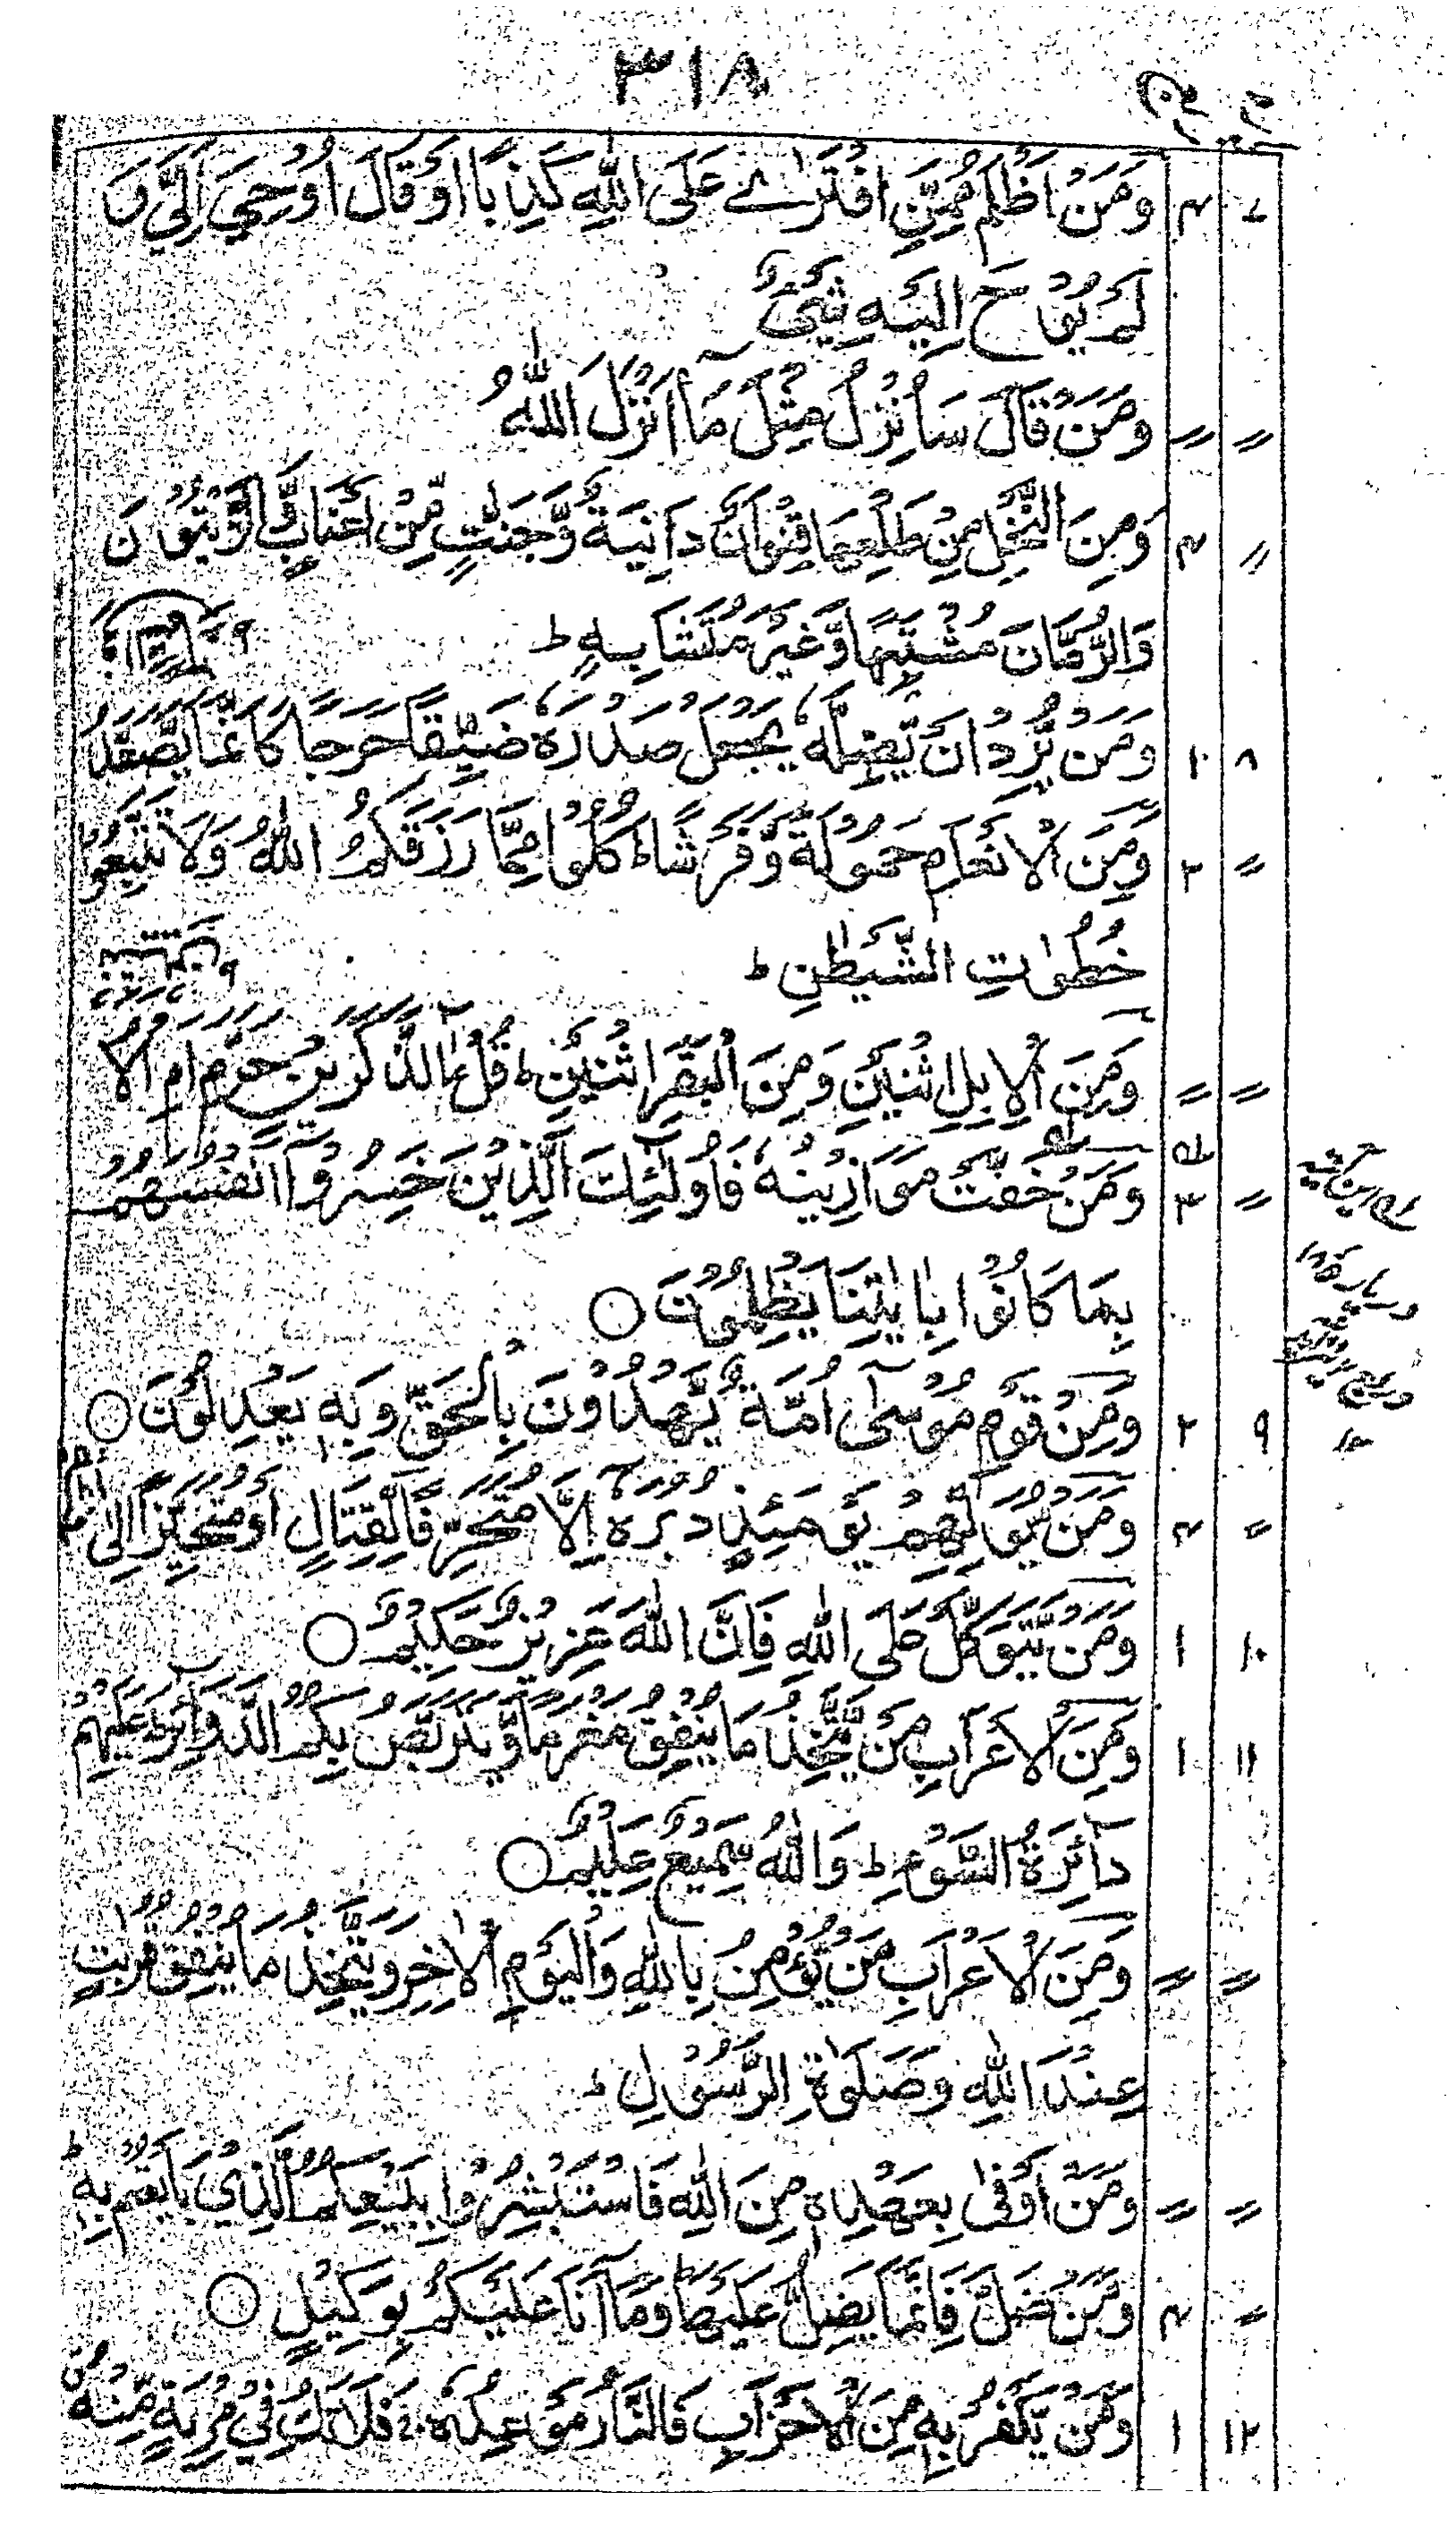 ٣١٨
٧ ٣ وَمَنْ اَظْلَمُ مِمَّنِ افْتَرٰے عَلَى اللّٰهِ كَذِبًا اَوْ قَالَ اُوْحِيَ اِلَيَّ وَ
لَمْ يُوْحَ اِلَيْهِ شَيْئٌ
〃 〃 وَمَنْ قَالَ سَاُنْزِلُ مِثْلَ مَآ اَنْزَلَ اللّٰهُ
〃 ٣ وَمِنَ النَّخْلِ مِنْ طَلْعِهَا قِنْوَانٌ دَانِيَةٌ وَّجَنّٰتٍ مِّنْ اَعْنَابٍ وَّالزَّيْتُوْنَ
وَالرُّمَّانَ مُشْتَبِهًا وَّغَيْرَ مُتَشَابِهٍ ط
٨ ١ وَمَنْ يُّرِدْ اَنْ يُّضِلَّهٗ يَجْعَلْ صَدْرَهٗ ضَيِّقًا حَرَجًا كَاَنَّمَا يَصَّعَّدُ
〃 ٢ وَمِنَ الْاَنْعَامِ حَمُوْلَةً وَّفَرْشًا ط كُلُوْا مِمَّا رَزَقَكُمُ اللّٰهُ وَلَا تَتَّبِعُوْا
خُطُوٰتِ الشَّيْطٰنِ ط
〃 〃 وَمِنَ الْاِبِلِ اثْنَيْنِ وَمِنَ الْبَقَرِ اثْنَيْنِ ط قُلْ ءٰٓالذَّكَرَيْنِ حَرَّمَ اَمِ الْاُ
〃 ٣ وَمَنْ خَفَّتْ مَوَازِيْنُهٗ فَاُولٰٓئِكَ الَّذِيْنَ خَسِرُوْٓا اَنْفُسَهُمْ
بِمَا كَانُوْا بِاٰيٰتِنَا يَظْلِمُوْنَ ○
٩ ٢ وَمِنْ قَوْمِ مُوْسٰٓى اُمَّةٌ يَّهْدُوْنَ بِالْحَقِّ وَبِهٖ يَعْدِلُوْنَ ○
〃 ٣ وَمَنْ يُّوَلِّهِمْ يَوْمَئِذٍ دُبُرَهٗٓ اِلَّا مُتَحَرِّفًا لِّقِتَالٍ اَوْ مُتَحَيِّزًا اِلٰى
١٠ ١ وَمَنْ يَّتَوَكَّلْ عَلَى اللّٰهِ فَاِنَّ اللّٰهَ عَزِيْزٌ حَكِيْمٌ ○
١١ ١ وَمِنَ الْاَعْرَابِ مَنْ يَّتَّخِذُ مَا يُنْفِقُ مَغْرَمًا وَّيَتَرَبَّصُ بِكُمُ الدَّوَآئِرَ ط عَلَيْهِمْ
دَآئِرَةُ السَّوْءِ ط وَاللّٰهُ سَمِيْعٌ عَلِيْمٌ ○
〃 〃 وَمِنَ الْاَعْرَابِ مَنْ يُّؤْمِنُ بِاللّٰهِ وَالْيَوْمِ الْاٰخِرِ وَيَتَّخِذُ مَا يُنْفِقُ قُرُبٰتٍ
عِنْدَ اللّٰهِ وَصَلَوٰةِ الرَّسُوْلِ ط
〃 〃 وَمَنْ اَوْفٰى بِعَهْدِهٖ مِنَ اللّٰهِ فَاسْتَبْشِرُوْا بِبَيْعِكُمُ الَّذِيْ بَايَعْتُمْ بِهٖ ط
〃 ٣ وَمَنْ ضَلَّ فَاِنَّمَا يَضِلُّ عَلَيْهَا ط وَمَآ اَنَا عَلَيْكُمْ بِوَكِيْلٍ ○
١٢ ١ وَمَنْ يَّكْفُرْ بِهٖ مِنَ الْاَحْزَابِ فَالنَّارُ مَوْعِدُهٗ فَلَا تَكُ فِيْ مِرْيَةٍ مِّنْهُ